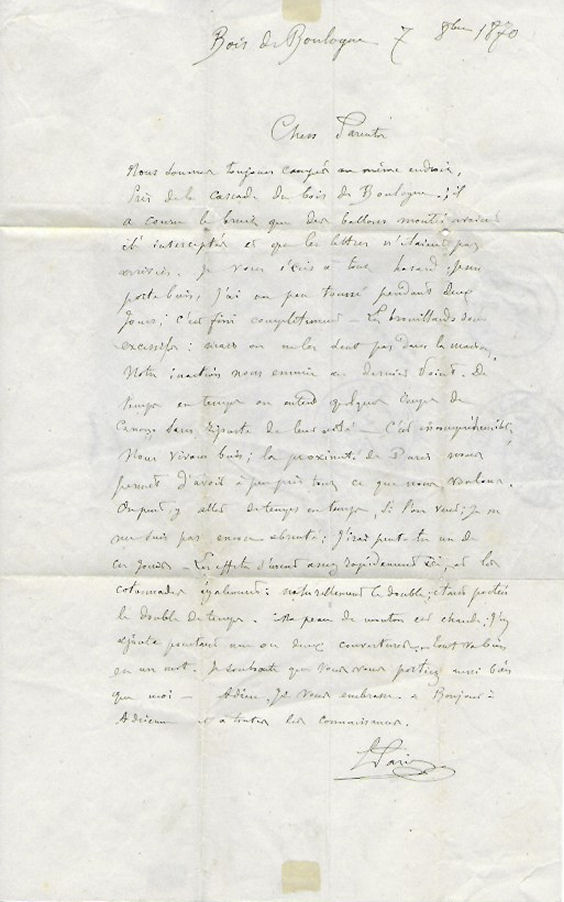 Bois de Boulogne 7 8bre 1870
Chers Parents
Nous sommes toujours campés au même endroit,
Près de la Cascade du bois de Boulogne ; il
a couru le bruit que des ballons montés avaient
été interceptés et que les lettres n'étaient pas
arrivées. Je vous écris à tout hasard ; je me
porte bien, j'ai un peu toussé pendant deux
jours ; c'est fini complètement — Les brouillards sont
excessifs : mais on ne les sent pas dans la maison.
Notre inaction nous ennuie au dernier point. De
temps en temps on entend quelques coups de
Canons, sans riposte de leur côté — C'est incompréhensible,
Nous vivons bien ; la proximité de Paris nous
permet d'avoir à peu près tout ce que nous voulons.
On peut y aller de temps en temps, si l'on veut ; je
ne suis pas encore ; j'irai peut-être un de
ces jours — Les effets s'usent assez rapidement ici, et les
cotonnades également : naturellement le double ; étant portées
le double de temps. Ma peau de mouton est chaude ; j'y
ajoute pourtant une ou deux couvertures — tout va bien
en un mot. Je souhaite que vous vous portiez aussi bien
que moi — Adieu. Je vous embrasse. Bonjour à
Adrienne et à toutes les connaissances.